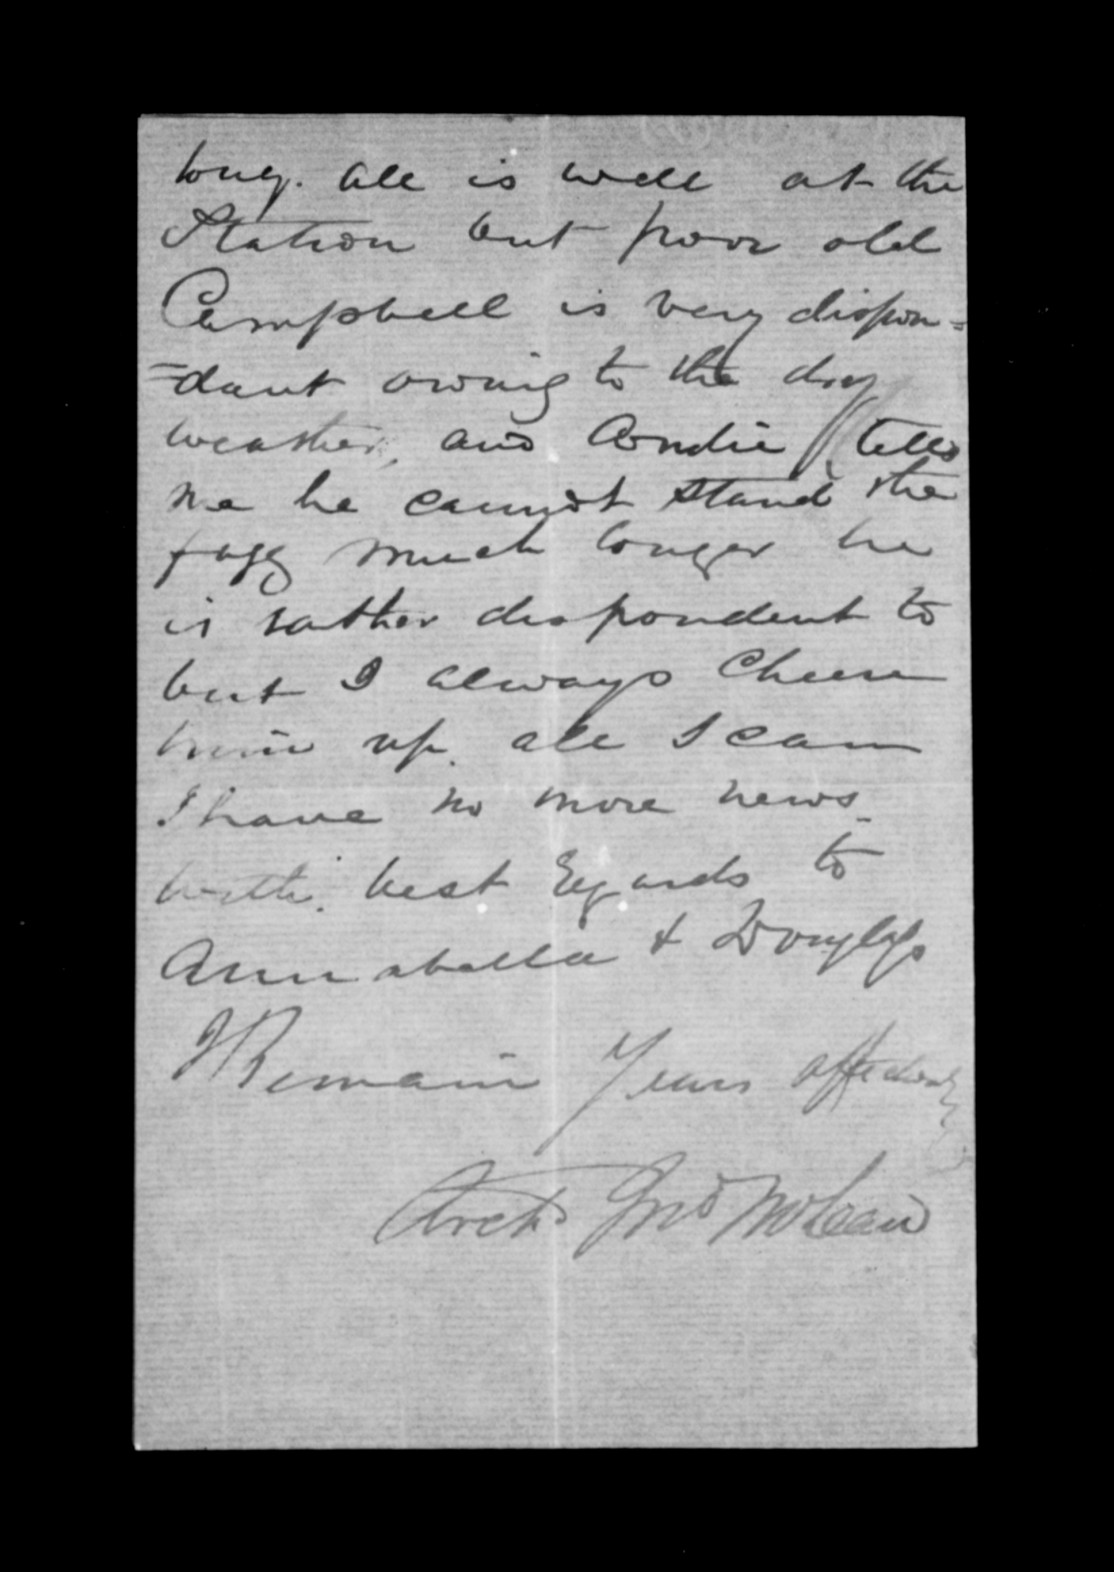 long. all is well at the
Station but poor old
Campbell is very dispon=
=dant owing to the dry
weather, and Condie tells
me he cannot stand the
fagg much longer he
is rather despondent to
but I always cheer
him up all I can
I have no more news.
with best regards to
Annabella & Douglas
I Remain Yours affectionately
Archd Jno McLean